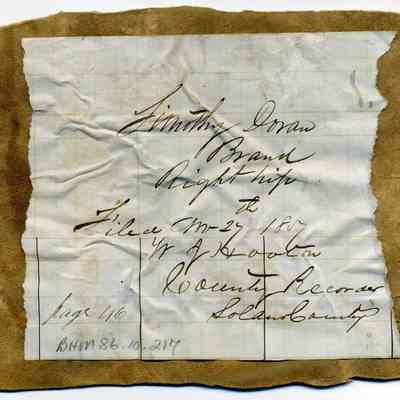 Timothy Doran
Brand
Right hip
th
Filed 27 18
W J Hooton
County Recorder
Solano County
Page 46
BHM 86.10.217